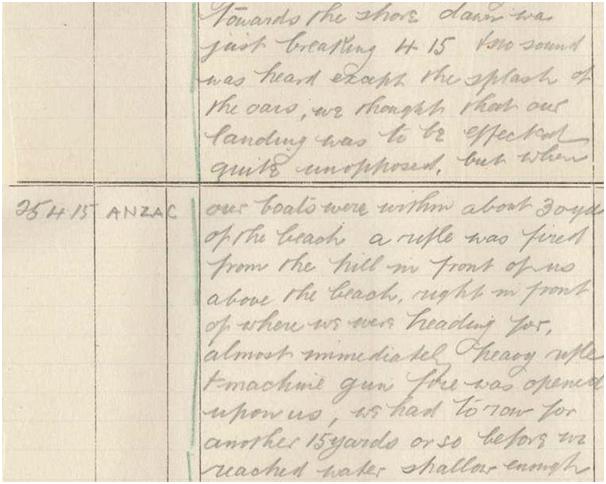 towards the shore dawn was
just breaking 4 15 & no sound
was heard except the splash of
the oars, we thought that our
landing was to be effected
quite unopposed, but when
25 4 15 ANZAC our boats were within about 30 yds
of the beach a rifle was fired
from the hill in front of us
above the beach, right in front
of where we were heading for,
almost immediately heavy rifle
& machine gun fire was opened
upon us, we had to row for
another 15 yards or so before we
reached water shallow enough